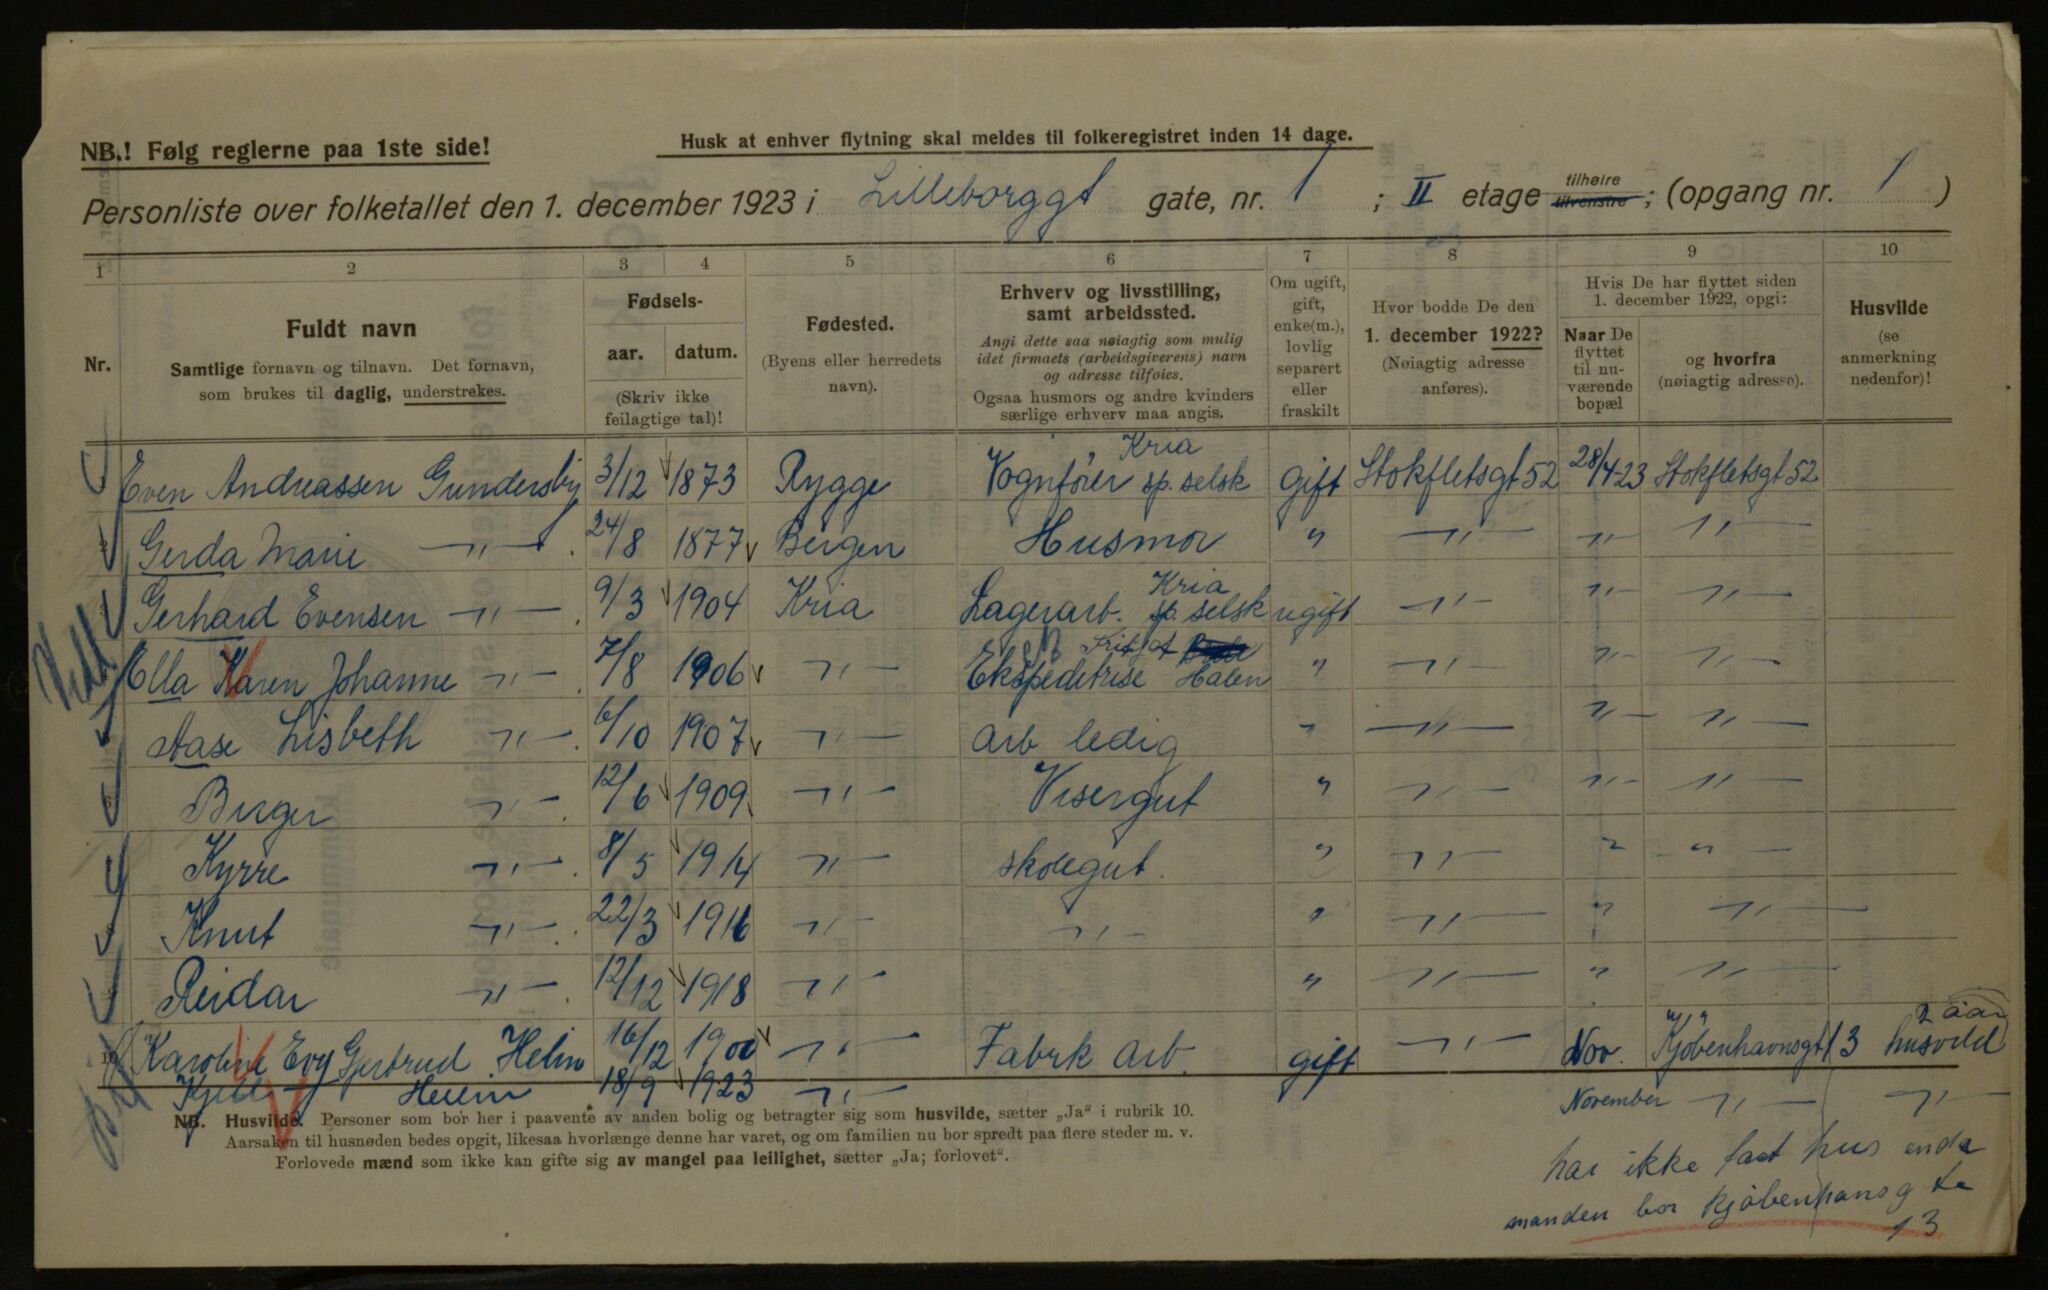 NB.! Følg reglerne paa 1ste side!
Husk at enhver flytning skal meldes til folkeregistret inden 14 dage.
Personliste over folketallet den 1. december 1923 i Lilleborggt gate, nr. 1 ; II etage tilhøire tilvenstre ; (opgang nr. 1 )
1 2 3 4 5 6 7 8 9 10
Nr.
Fuldt navn
Samtlige fornavn og tilnavn. Det fornavn,
som brukes til daglig, understrekes.
Fødsels-
aar. datum.
(Skriv ikke
feilagtige tal)!
Fødested.
(Byens eller herredets
navn).
Erhverv og livsstilling,
samt arbeidssted.
Angi dette saa nøiagtig som mulig
idet firmaets (arbeidsgiverens) navn
og adresse tilføies.
Ogsaa husmors og andre kvinders
særlige erhverv maa angis.
Om ugift,
gift,
enke(m.),
lovlig
separert
eller
fraskilt
Hvor bodde De den
1. december 1922?
(Nøiagtig adresse
anføres).
Hvis De har flyttet siden
1. december 1922, opgi:
Naar De
flyttet
til nu-
værende
bopæl
og hvorfra
(nøiagtig adresse).
Husvilde
(se
anmerkning
nedenfor)!
Even Andreassen Gundersby 3/12 1873 Rygge Vognfører Kria sp. selsk gift Stokfletsgt 52 28/4-23 Stokfletsgt 52
Gerda Marie —"— 24/8 1877 Bergen Husmor " —"— —"— —"—
Gerhard Evensen —"— 9/3 1904 Kria Lagerarb. Kria sp. selsk ugift —"— —"— —"—
Ella Karen Johanne —"— 7/8 1906 —"— Ekspeditrise Halen " —"— —"— —"—
Aase Lisbeth —"— 6/10 1907 —"— Arb ledig " —"— —"— —"—
Birger —"— 12/6 1909 —"— Visergut " —"— —"— —"—
Kyrre —"— 8/5 1914 —"— skolegut. " —"— " —"—
Knut —"— 22/3 1916 —"— —"— " —"— " —"—
Reidar —"— 12/12 1918 —"— " —"— " —"—
10 Karoline Evy Gjertrud Helin 16/12 1900 —"— Fabrk arb. gift —"— Nov. Kjøbenhavnsgt 13 2 aar husvild
Kjell Helin 18/9 1923 —"— November —"— —"—
NB. Husvilde. Personer som bor her i paavente av anden bolig og betragter sig som husvilde, sætter „Ja" i rubrik 10.
Aarsaken til husnøden bedes opgit, likesaa hvorlænge denne har varet, og om familien nu bor spredt paa flere steder m. v.
Forlovede mænd som ikke kan gifte sig av mangel paa leilighet, sætter „Ja; forlovet".
har ikke faat hus enda
manden bor kjøbenhansg
13